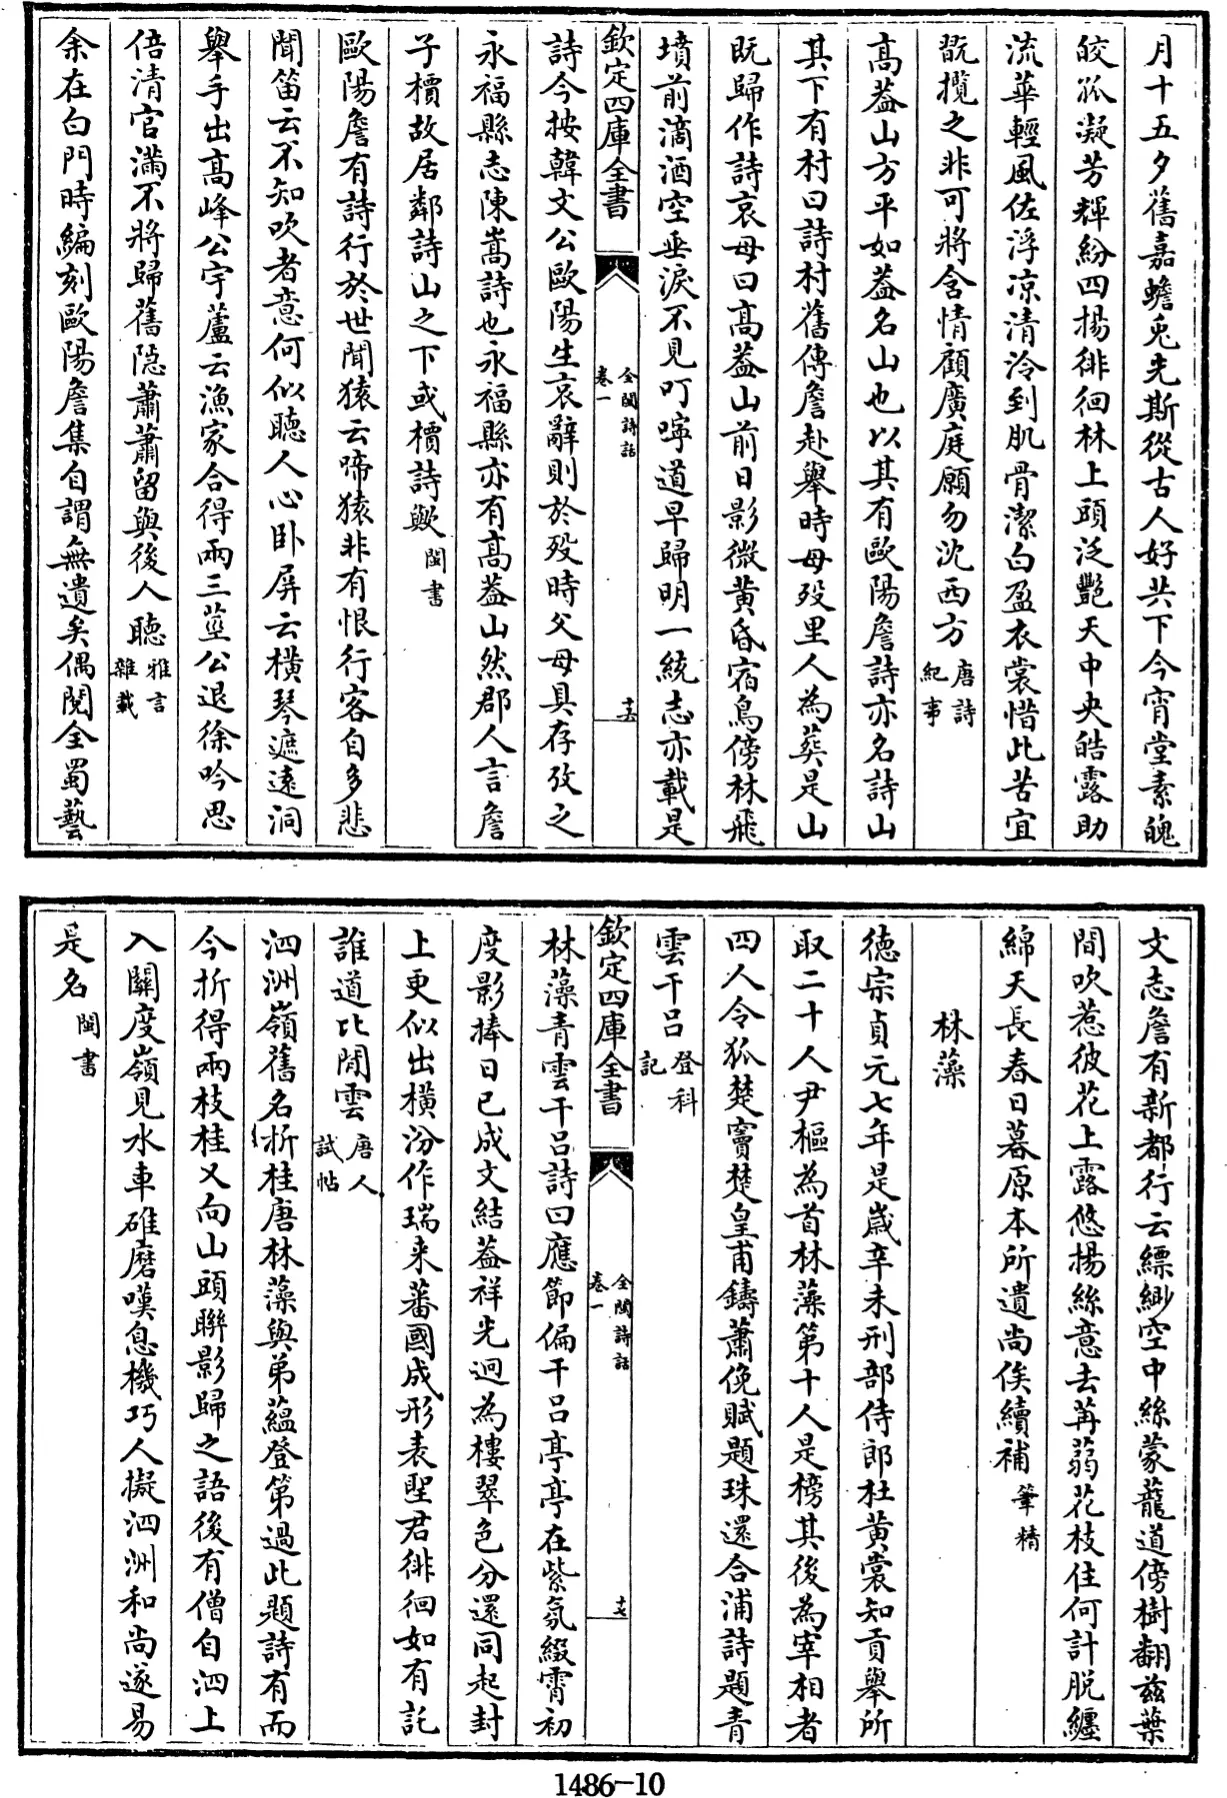 月十五夕舊嘉蟾兎先斯從古人好共下今宵堂素魄
皎孤凝芳輝紛四揚徘徊林上頭泛艷天中央皓露助
流華輕風佐浮凉清泠到肌骨潔白盈衣裳惜此苦宜
翫攬之非可將含情顧廣庭願勿沈西方唐詩紀事
高葢山方平如葢名山也以其有歐陽詹詩亦名詩山
其下有村曰詩村舊傳詹赴舉時母殁里人為葬是山
既歸作詩哀母曰高葢山前日影微黄昏宿鳥傍林飛
墳前滴酒空垂淚不見叮嚀道早歸明一統志亦載是
欽定四庫全書
全閩詩話
卷一
十六
詩今按韓文公歐陽生哀辭則於殁時父母具存攷之
永福縣志陳嵩詩也永福縣亦有高葢山然郡人言詹
子櫝故居鄰詩山之下或櫝詩歟閩書
歐陽詹有詩行於世聞猿云啼猿非有恨行客自多悲
聞笛云不知吹者意何似聽人心卧屏云橫琴遮遠洞
舉手出高峰公宇蘆云漁家合得兩三莖公退徐吟思
倍清官滿不將歸舊隠蕭蕭留與後人聽雅言雜載
余在白門時編刻歐陽詹集自謂無遺矣偶閱全蜀藝
文志詹有新都行云縹緲空中絲蒙蘢道傍樹翻兹葉
間吹惹彼花上露悠揚絲意去苒蒻花枝住何計脱纒
綿天長春日暮原本所遺尚俟續補筆精
林藻
徳宗貞元七年是歲辛未刑部侍郎杜黄裳知貢舉所
取二十人尹樞為首林藻第十人是榜其後為宰相者
四人令狐楚竇楚皇甫鑄蕭俛賦題珠還合浦詩題青
雲干吕登科記
欽定四庫全書
全閩詩話
卷一
十七
林藻青雲干吕詩曰應節偏干吕亭亭在紫氛綴霄初
度影捧日已成文結葢祥光迥為樓翠色分還同起封
上更似出橫汾作瑞来蕃國成形表聖君徘徊如有託
誰道比閒雲唐人試帖
泗洲嶺舊名折桂唐林藻與弟藴登第過此題詩有而
今折得兩枝桂又向山頭聯影歸之語後有僧自泗上
入關度嶺見水車碓磨嘆息機巧人擬泗洲和尚遂易
是名閩書
1486-10